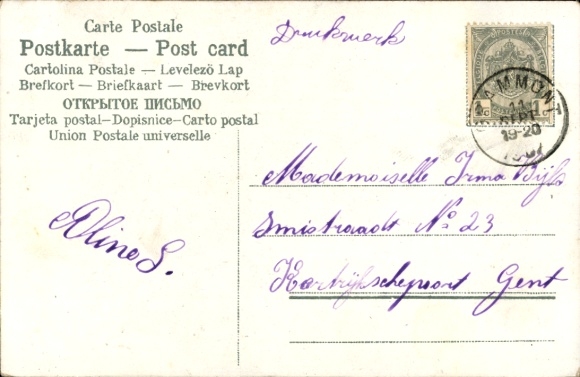 Carte Postale
Postkarte — Post card
Cartolina Postale — Levelező Lap
Brefkort — Briefkaart — Brevkort
ОТКРЫТОЕ ПИСЬМО
Tarjeta postal—Dopisnice—Carto postal
Union Postale universelle
Drukwerk
POSTES
1c 1c
GRAMMONT
11
19-20
1907
Mademoiselle Irma Byls
Smistraadt No 23
Kortrijkschepoort Gent
Aline S.